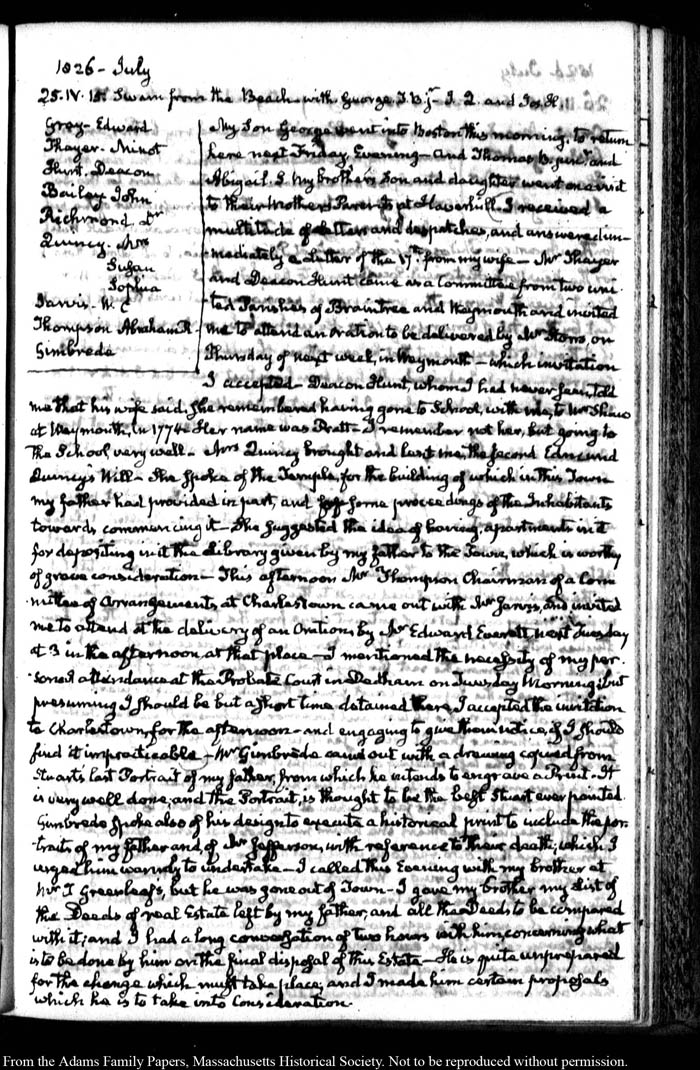 1826 - July
25. IV. 15. Swam from the Beach with George T. B. jr. I. Q. and Jos. H.
Gray - Edward
Thayer - Minot
Hunt. Deacon
Bailey John
Richmond Dr
Quincy. Mrs
Susan
Sophia
Jarvis - W. C
Thompson Abraham R
Gimbrede
My Son George went into Boston this morning, to return
here next Friday Evening - And Thomas B. junr. and
Abigail S. my brother's Son and daughter went on a visit
to their Mother's Parents at Haverhill. I received a
multitude of letters and despatches, and answered im-
mediately a Letter of the 17th from my wife - Mr Thayer
and Deacon Hunt came as a Committee from two uni-
ted Parishes of Braintree and Weymouth and invited
me to attend an oration to be delivered by Mr Storrs, on
Thursday of next week, in Weymouth - which invitation
I accepted - Deacon Hunt, whom I had never seen, told
me that his wife said, she remembered having gone to School, with me, to Mr Shaw
at Weymouth, in 1774 - Her name was Pratt - I remember not her, but going to
the School very well - Mrs Quincy brought and lent me, the second Edmund
Quincy's Will - She spoke of the Temple, for the building of which in this Town
my father had provided in part, and some proceedings of the Inhabitants
towards commencing it - She suggested the idea of having, apartments in it
for depositing in it the Library given by my father to the Town, which is worthy
of grave consideration - This afternoon Mr Thompson Chairman of a Com-
mittee of Arrangements at Charlestown came out with Mr Jarvis, and invited
me to attend at the delivery of an Oration, by Mr Edward Everett next Tuesday
at 3 in the afternoon at that place - I mentioned the necessity of my per-
sonal attendance at the Probate Court in Dedham on Tuesday Morning; but
presuming I should be but a short time detained there, I accepted the invitation
to Charlestown, for the afternoon - and engaging to give them notice, if I should
find it impracticable - Mr Gimbrede came out with a drawing copied from
Stuart's last Portrait of my father, from which he intends to engrave a Print - It
is very well done, and the Portrait, is thought to be the best Stuart ever painted.
Gimbrede spoke also of his design to execute a historical print to include the por-
traits of my father and of Mr Jefferson, with reference to their death; which I
urged him warmly to undertake - I called this Evening with my brother at
Mr T Greenleaf's, but he was gone out of Town - I gave my brother my List of
the Deeds of real Estate left by my father, and all the Deeds to be compared
with it; and I had a long conversation of two hours with him, concerning what
is to be done by him on the final disposal of this Estate - He is quite unprepared
for the change which must take place; and I made him certain proposals
which he is to take into Consideration.
From the Adams Family Papers, Massachusetts Historical Society. Not to be reproduced without permission.